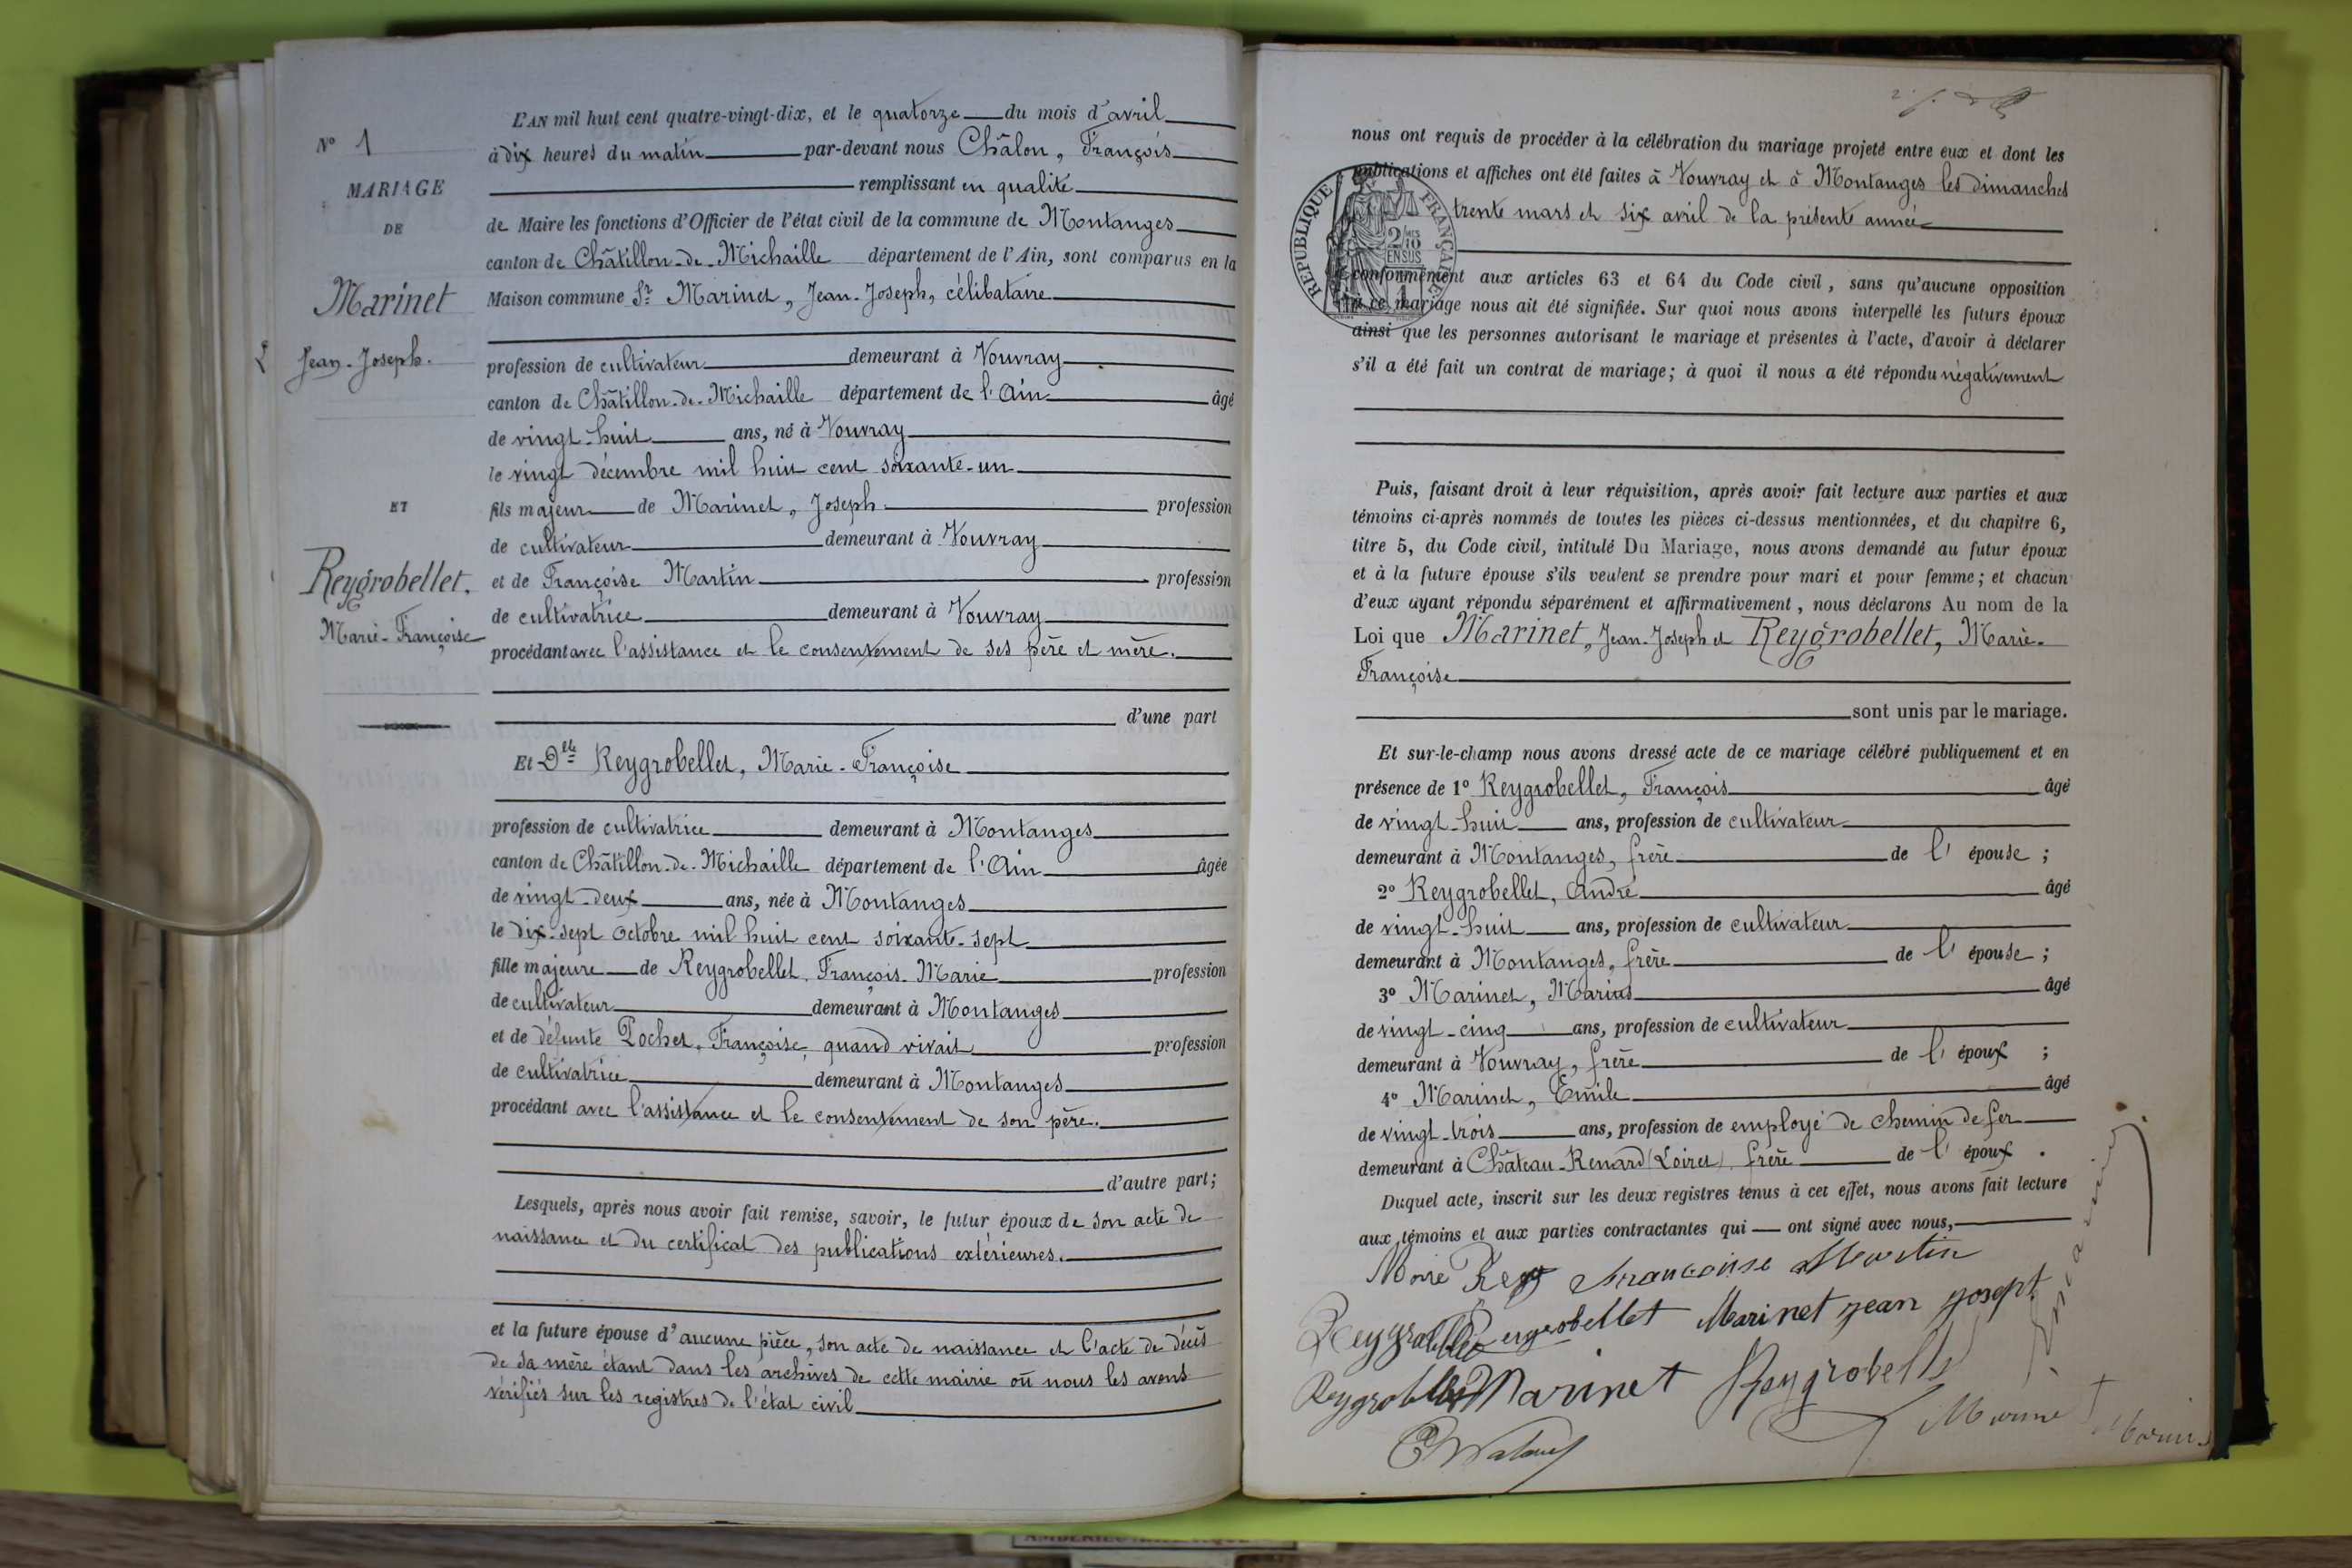 N° 1
MARIAGE
DE
Marinet
Jean-Joseph.
ET
Reygrobellet.
Marie-Françoise
L'AN mil huit cent quatre-vingt-dix, et le quatorze du mois d'avril
à dix heures du matin par-devant nous Châlon, François
remplissant en qualité
de Maire les fonctions d'Officier de l'état civil de la commune de Montanges
canton de Châtillon-de-Michaille département de l'Ain, sont comparus en la
Maison commune Sr Marinet, Jean-Joseph, célibataire
profession de cultivateur demeurant à Vouvray
canton de Châtillon-de-Michaille département de l'Ain âgé
de vingt-huit ans, né à Vouvray
le vingt décembre mil huit cent soixante-un
fils majeur de Marinet, Joseph profession
de cultivateur demeurant à Vouvray
et de Françoise Martin profession
de cultivatrice demeurant à Vouvray
procédant avec l'assistance et le consentement de ses père et mère.
d'une part
Et Dlle Reygrobellet, Marie-Françoise
profession de cultivatrice demeurant à Montanges
canton de Châtillon-de-Michaille département de l'Ain âgée
de vingt-deux ans, née à Montanges
le dix-sept octobre mil huit cent soixante-sept
fille majeure de Reygrobellet, François-Marie profession
de cultivateur demeurant à Montanges
et de défunte Pochet, Françoise, quand vivait profession
de cultivatrice demeurant à Montanges
procédant avec l'assistance et le consentement de son père.
d'autre part;
Lesquels, après nous avoir fait remise, savoir, le futur époux de son acte de
naissance et du certificat des publications extérieures.
et la future épouse d'aucune pièce, son acte de naissance et l'acte de décès
de sa mère étant dans les archives de cette mairie où nous les avons
vérifiés sur les registres de l'état civil
nous ont requis de procéder à la célébration du mariage projeté entre eux et dont les
publications et affiches ont été faites à Vouvray et à Montanges les dimanches
trente mars et six avril de la présente année
REPUBLIQUE FRANÇAISE
2/10 EN SUS
conformément aux articles 63 et 64 du Code civil, sans qu'aucune opposition
à ce mariage nous ait été signifiée. Sur quoi nous avons interpellé les futurs époux
ainsi que les personnes autorisant le mariage et présentes à l'acte, d'avoir à déclarer
s'il a été fait un contrat de mariage; à quoi il nous a été répondu négativement
Puis, faisant droit à leur réquisition, après avoir fait lecture aux parties et aux
témoins ci-après nommés de toutes les pièces ci-dessus mentionnées, et du chapitre 6,
titre 5, du Code civil, intitulé Du Mariage, nous avons demandé au futur époux
et à la future épouse s'ils veulent se prendre pour mari et pour femme; et chacun
d'eux ayant répondu séparément et affirmativement, nous déclarons Au nom de la
Loi que Marinet, Jean-Joseph et Reygrobellet, Marie-
Françoise
sont unis par le mariage.
Et sur-le-champ nous avons dressé acte de ce mariage célébré publiquement et en
présence de 1° Reygrobellet, François âgé
de vingt-huit ans, profession de cultivateur
demeurant à Montanges, frère de l'épouse;
2° Reygrobellet, André âgé
de vingt-huit ans, profession de cultivateur
demeurant à Montanges, frère de l'épouse;
3° Marinet, Marius âgé
de vingt-cinq ans, profession de cultivateur
demeurant à Vouvray, frère de l'époux;
4° Marinet, Emile âgé
de vingt-trois ans, profession de employé de chemin de fer
demeurant à Château-Renard (Loiret), frère de l'époux.
Duquel acte, inscrit sur les deux registres tenus à cet effet, nous avons fait lecture
aux témoins et aux parties contractantes qui ont signé avec nous,
Françoise Martin
Marinet jean josept
Marinet Reygrobellet